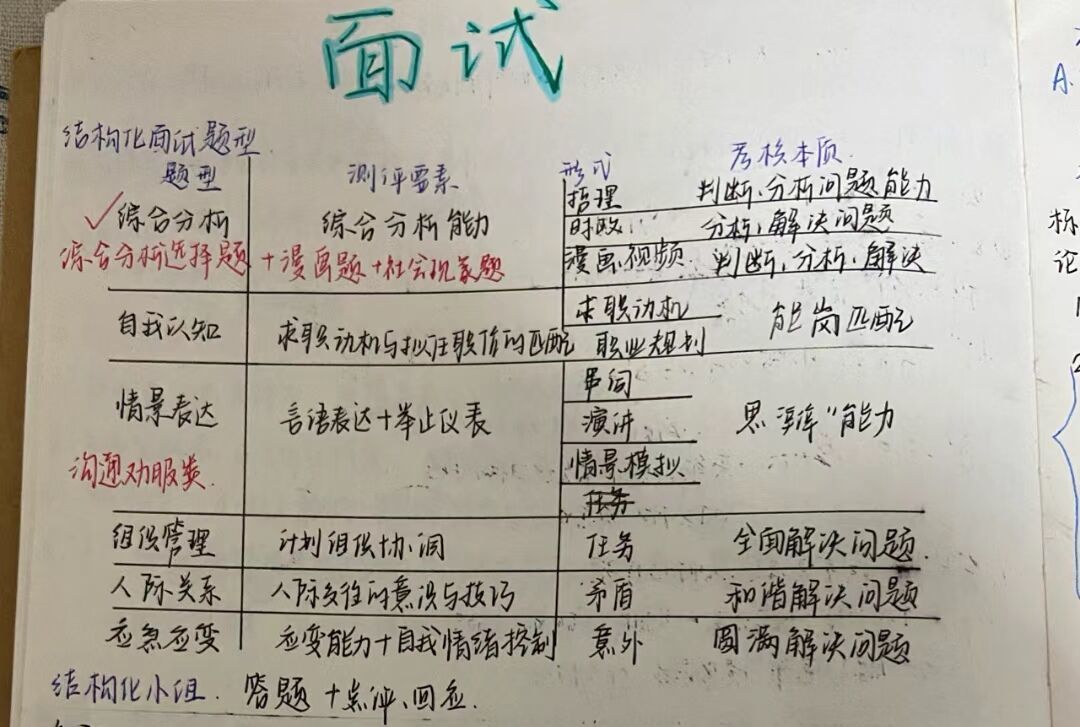 面试
结构化面试题型
题型 测评要素 形式 考核本质
✓综合分析 综合分析能力 哲理 判断、分析问题能力
时政 分析、解决问题
综合分析选择题+漫画题+社会现象题 漫画、视频 判断、分析、解决
自我认知 求职动机与拟任职位的匹配 求职动机 能岗匹配
职业规划
情景表达 言语表达+举止仪表 串词 思维"能力
演讲
沟通劝服类 情景模拟
任务
组织管理 计划组织协调 任务 全面解决问题
人际关系 人际交往的意识与技巧 矛盾 和谐解决问题
应急应变 应变能力+自我情绪控制 意外 圆满解决问题
结构化小组. 答题+点评、回应.
A.
标
论